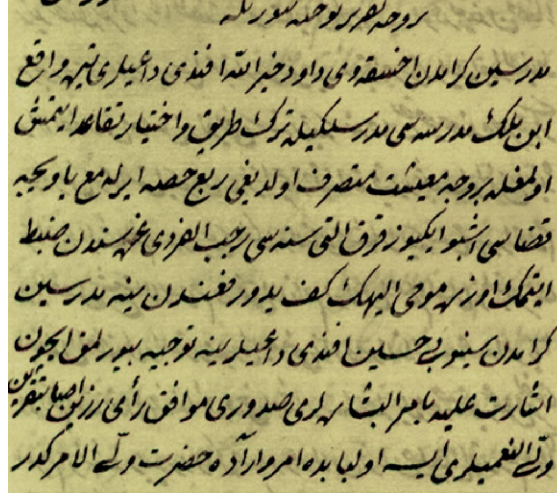 بروجه تقرير توجيه بيوريله
مدرسين كرامدن اخسقه‌وى داود خيرالله افندى داعيلرى تيره‌ده واقع
ابن ملك مدرسه‌سى مدرسلكيله ترك طريق واختيار تقاعد ايتمش
اولمغله بروجه معيشت متصرف اولديغى ربع حصه ايرله مع ياويجه
قضاسى اشبو ايكيوز قرق التى سنه‌سى رجب الفردى غره‌سندن ضبط
ايتمك اوزره مومى اليهك كف يد ورفعندن ينه مدرسين
كرامدن سينوبى حسين افندى داعيلرينه توجيه بيورلمق ايچون
اشارت عليه باهر البشاره‌لرى صدورى موافق رأى رزين اصابتقرين
ولى النعميلرى ايسه اولبابده امر واراده حضرت ولى الامركدر